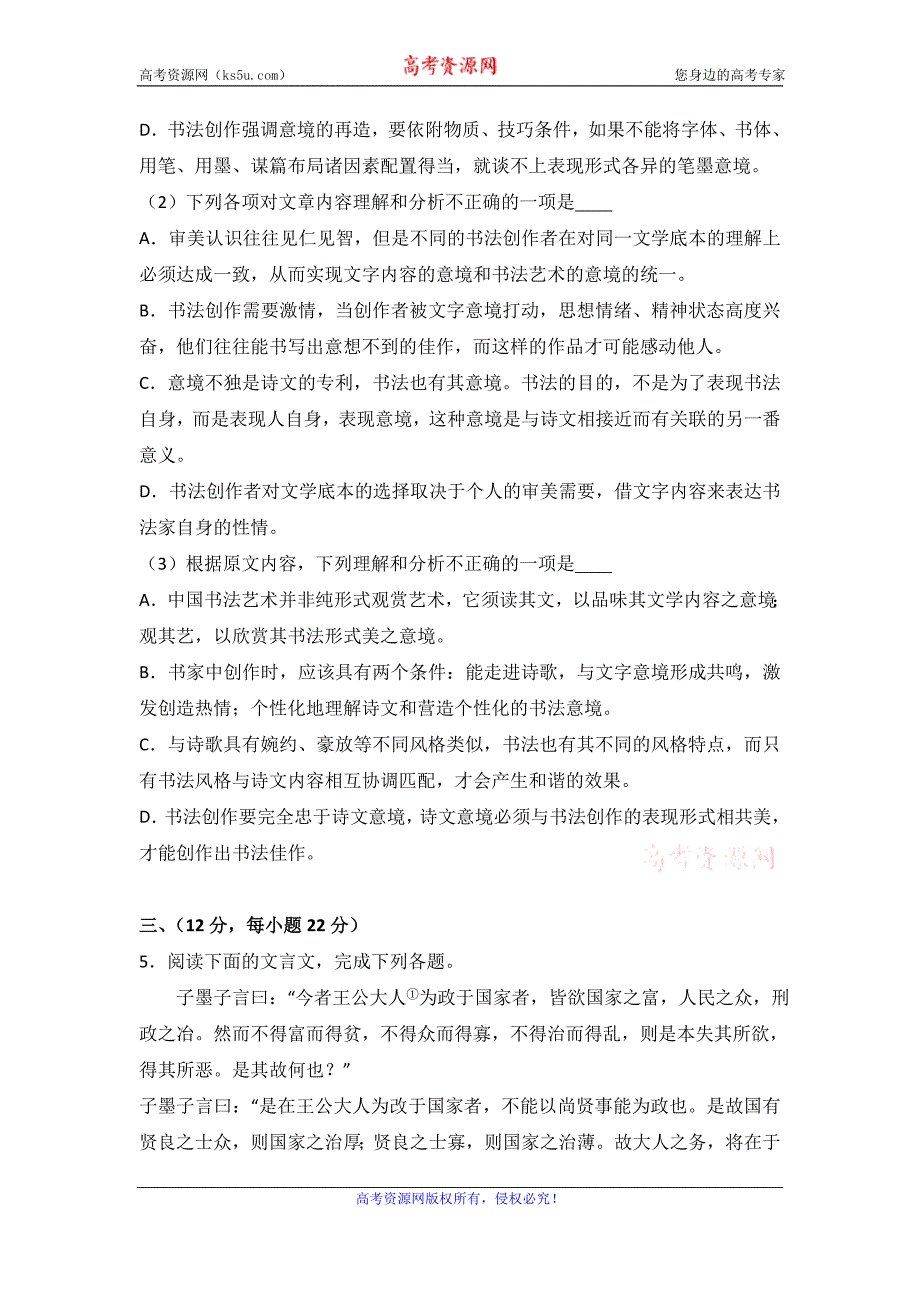 高考资源网（ks5u.com）
高考资源网
您身边的高考专家
D．书法创作强调意境的再造，要依附物质、技巧条件，如果不能将字体、书体、
用笔、用墨、谋篇布局诸因素配置得当，就谈不上表现形式各异的笔墨意境。
（2）下列各项对文章内容理解和分析不正确的一项是____
A．审美认识往往见仁见智，但是不同的书法创作者在对同一文学底本的理解上
必须达成一致，从而实现文字内容的意境和书法艺术的意境的统一。
B．书法创作需要激情，当创作者被文字意境打动，思想情绪、精神状态高度兴
奋，他们往往能书写出意想不到的佳作，而这样的作品才可能感动他人。
C．意境不独是诗文的专利，书法也有其意境。书法的目的，不是为了表现书法
自身，而是表现人自身，表现意境，这种意境是与诗文相接近而有关联的另一番
意义。
D．书法创作者对文学底本的选择取决于个人的审美需要，借文字内容来表达书
法家自身的性情。
（3）根据原文内容，下列理解和分析不正确的一项是____
A．中国书法艺术并非纯形式观赏艺术，它须读其文，以品味其文学内容之意境；
观其艺，以欣赏其书法形式美之意境。
B．书家中创作时，应该具有两个条件：能走进诗歌，与文字意境形成共鸣，激
发创造热情；个性化地理解诗文和营造个性化的书法意境。
C．与诗歌具有婉约、豪放等不同风格类似，书法也有其不同的风格特点，而只
有书法风格与诗文内容相互协调匹配，才会产生和谐的效果。
D．书法创作要完全忠于诗文意境，诗文意境必须与书法创作的表现形式相共美，
才能创作出书法佳作。
高考资源网
三、（12分，每小题22分）
5．阅读下面的文言文，完成下列各题。
子墨子言曰：“今者王公大人①为政于国家者，皆欲国家之富，人民之众，刑
政之冶。然而不得富而得贫，不得众而得寡，不得治而得乱，则是本失其所欲，
得其所恶。是其故何也？”
子墨子言曰：“是在王公大人为改于国家者，不能以尚贤事能为政也。是故国有
贤良之士众，则国家之治厚；贤良之士寡，则国家之治薄。故大人之务，将在于
高考资源网版权所有，侵权必究！